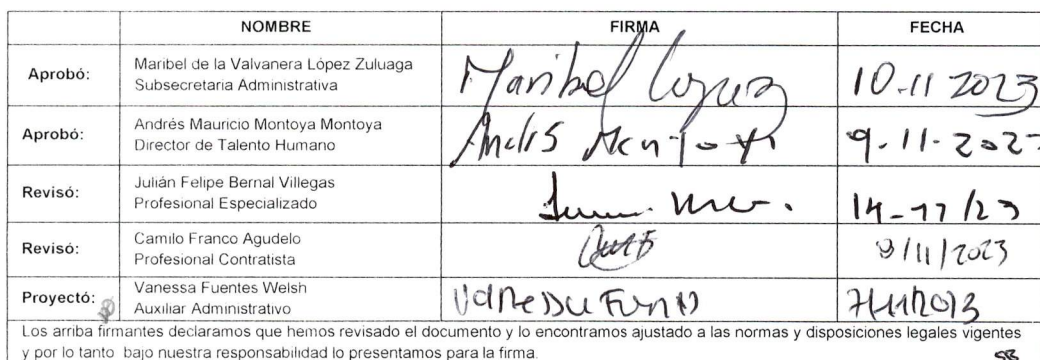 NOMBRE FIRMA FECHA
Aprobó: Maribel de la Valvanera López Zuluaga
Subsecretaria Administrativa
Maribel López 10-11 2023
Aprobó: Andrés Mauricio Montoya Montoya
Director de Talento Humano
Andrés Montoya 9-11-2023
Revisó: Julián Felipe Bernal Villegas
Profesional Especializado
14-11/23
Revisó: Camilo Franco Agudelo
Profesional Contratista
9/11/2023
Proyectó: Vanessa Fuentes Welsh
Auxiliar Administrativo
Vanessa Fuentes 7/11/2023
Los arriba firmantes declaramos que hemos revisado el documento y lo encontramos ajustado a las normas y disposiciones legales vigentes
y por lo tanto bajo nuestra responsabilidad lo presentamos para la firma.